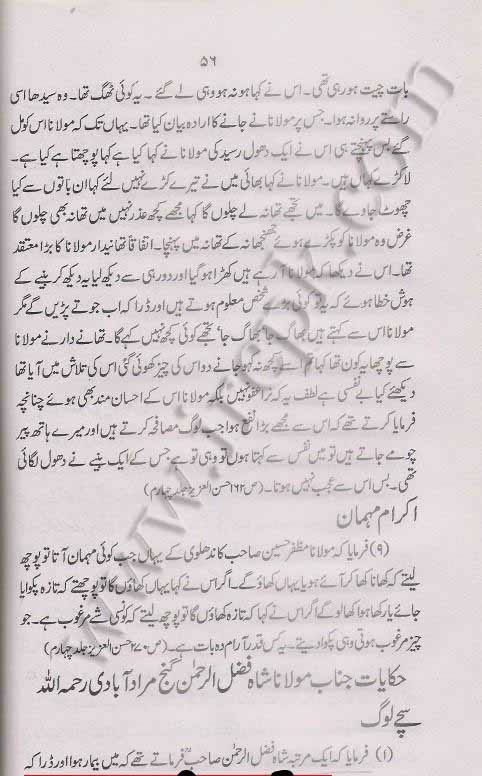 ۵۶
بات چیت ہو رہی تھی۔ اس نے کہا ہو نہ ہو وہی لے گئے۔ یہ کوئی ٹھگ تھا۔ وہ سیدھا اسی
راستے پر روانہ ہوا۔ جس پر مولانا نے جانے کا ارادہ بیان کیا تھا۔ یہاں تک کہ مولانا اس کو مل
گئے بس پہنچتے ہی اس نے ایک دھول رسید کی مولانا نے کہا کیا ہے کہا پوچھتا ہے کیا ہے۔
لا کڑے کہاں ہیں۔ مولانا نے کہا بھائی میں نے تیرے کڑے نہیں لئے کہا ان باتوں سے کیا
چھوٹ جاوے گا۔ میں تجھے تھانہ لے چلوں گا کہا مجھے کچھ عذر نہیں میں تھانہ بھی چلوں گا
غرض وہ مولانا کو پکڑے ہوئے جھنجھانہ کے تھانہ میں پہنچا۔ اتفاقاً تھانیدار مولانا کا بڑا معتقد
تھا۔ اس نے دیکھا کہ مولانا آ رہے ہیں کھڑا ہو گیا اور دور ہی سے دیکھ لیا یہ دیکھ کر بنیے کے
ہوش خطا ہوئے کہ یہ تو کوئی بڑے شخص معلوم ہوتے ہیں اور ڈرا کہ اب جوتے پڑیں گے مگر
مولانا اس سے کہتے ہیں بھاگ جا، بھاگ جا، تجھے کوئی کچھ نہیں کہے گا۔ تھانے دار نے مولانا
سے پوچھا یہ کون تھا کہا تم اسے کچھ نہ کہو جانے دو اس کی چیز کھوئی گئی اس کی تلاش میں آیا تھا
دیکھئے کیا بے نفسی ہے لطف یہ کہ نرا عفو نہیں بلکہ مولانا اس کے احسان مند بھی ہوئے چنانچہ
فرمایا کرتے تھے کہ اس سے مجھے بڑا نفع ہوا جب لوگ مصافحہ کرتے ہیں اور میرے ہاتھ پیر
چومے جاتے ہیں تو میں نفس سے کہتا ہوں تو وہی تو ہے جس کے ایک بنیے نے دھول لگائی
تھی۔ بس اس سے عجب نہیں ہوتا۔ (ص ۱۶۲ حسن العزیز جلد چہارم)
اکرام مہمان
(۹) فرمایا کہ مولانا مظفر حسین صاحب کاندھلوی کے یہاں جب کوئی مہمان آتا تو پوچھ
لیتے کہ کھانا کھا کر آئے ہو یا یہاں کھاؤ گے۔ اگر اس نے کہا یہاں کھاؤں گا تو پوچھتے کہ تازہ پکوایا
جائے یا رکھا ہوا کھا لو گے اگر اس نے کہا کہ تازہ کھاؤں گا تو پوچھ لیتے کہ کونسی شے مرغوب ہے۔ جو
چیز مرغوب ہوتی وہی پکوا دیتے۔ یہ کس قدر آرام دہ بات ہے۔ (ص ۲۷۰ حسن العزیز جلد چہارم)
حکایات جناب مولانا شاہ فضل الرحمٰن گنج مراد آبادی رحمہ اللہ
سچے لوگ
(۱) فرمایا کہ ایک مرتبہ شاہ فضل الرحمٰن صاحب فرماتے تھے کہ میں بیمار ہوا اور ڈرا کہ